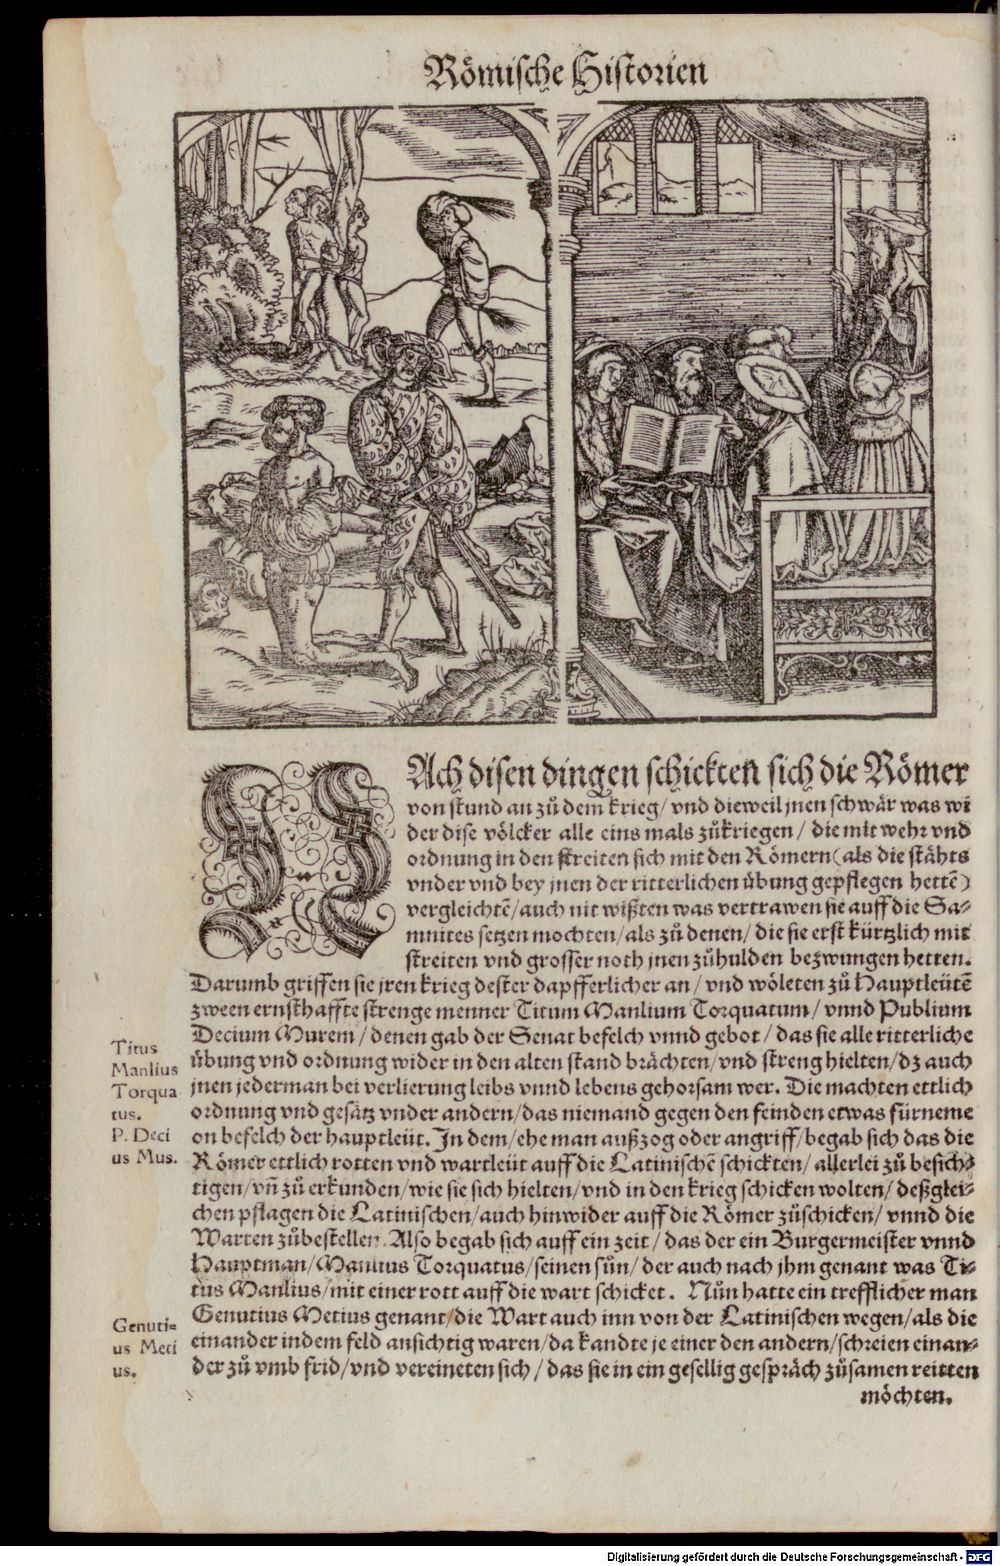 Römische Historien
NAch disen dingen schickten sich die Römer
von stund an zů dem krieg/ vnd dieweil jnen schwär was wi
der dise völcker alle eins mals zůkriegen/ die mit wehr vnd
ordnung in den streiten sich mit den Römern (als die stähts
vnder vnd bey jnen der ritterlichen übung gepflegen hettē)
vergleichtē/ auch nit wißten was vertrawen sie auff die Sa-
mnites setzen mochten/ als zů denen/ die sie erst kürtzlich mit
streiten vnd grosser noth jnen zůhulden bezwungen hetten.
Darumb griffen sie jren krieg dester dapfferlicher an/ vnd wöleten zů Hauptleütē
zween ernsthaffte strenge menner Titum Manlium Torquatum/ vnnd Publium
Decium Murem/ denen gab der Senat befelch vnnd gebot/ das sie alle ritterliche
übung vnd ordnung wider in den alten stand brächten/ vnd streng hielten/ dz auch
jnen jederman bei verlierung leibs vnnd lebens gehorsam wer. Die machten ettlich
ordnung vnd gesätz vnder andern/ das niemand gegen den feinden etwas fürneme
on befelch der hauptleüt. In dem/ ehe man außzog oder angriff/ begab sich das die
Römer ettlich rotten vnd wartleüt auff die Latinischē schickten/ allerlei zů besich-
tigen/ vñ zů erkunden/ wie sie sich hielten/ vnd in den krieg schicken wolten/ deßglei-
chen pflagen die Latinischen/ auch hinwider auff die Römer zůschicken/ vnnd die
Warten zůbestellen. Also begab sich auff ein zeit/ das der ein Burgermeister vnnd
Hauptman/ Manlius Torquatus/ seinen sůn/ der auch nach jhm genant was Ti-
tus Manlius/ mit einer rott auff die wart schicket. Nůn hatte ein trefflicher man
Genutius Metius genant/ die Wart auch inn von der Latinischen wegen/ als die
einander in dem feld ansichtig waren/ da kandte je einer den andern/ schreien einan-
der zů vmb frid/ vnd vereineten sich/ das sie in ein gesellig gespräch zůsamen reitten
möchten.
Titus
Manlius
Torqua
tus.
P. Deci
us Mus.
Genuti-
us Meti
us.
Digitalisierung gefördert durch die Deutsche Forschungsgemeinschaft - DFG